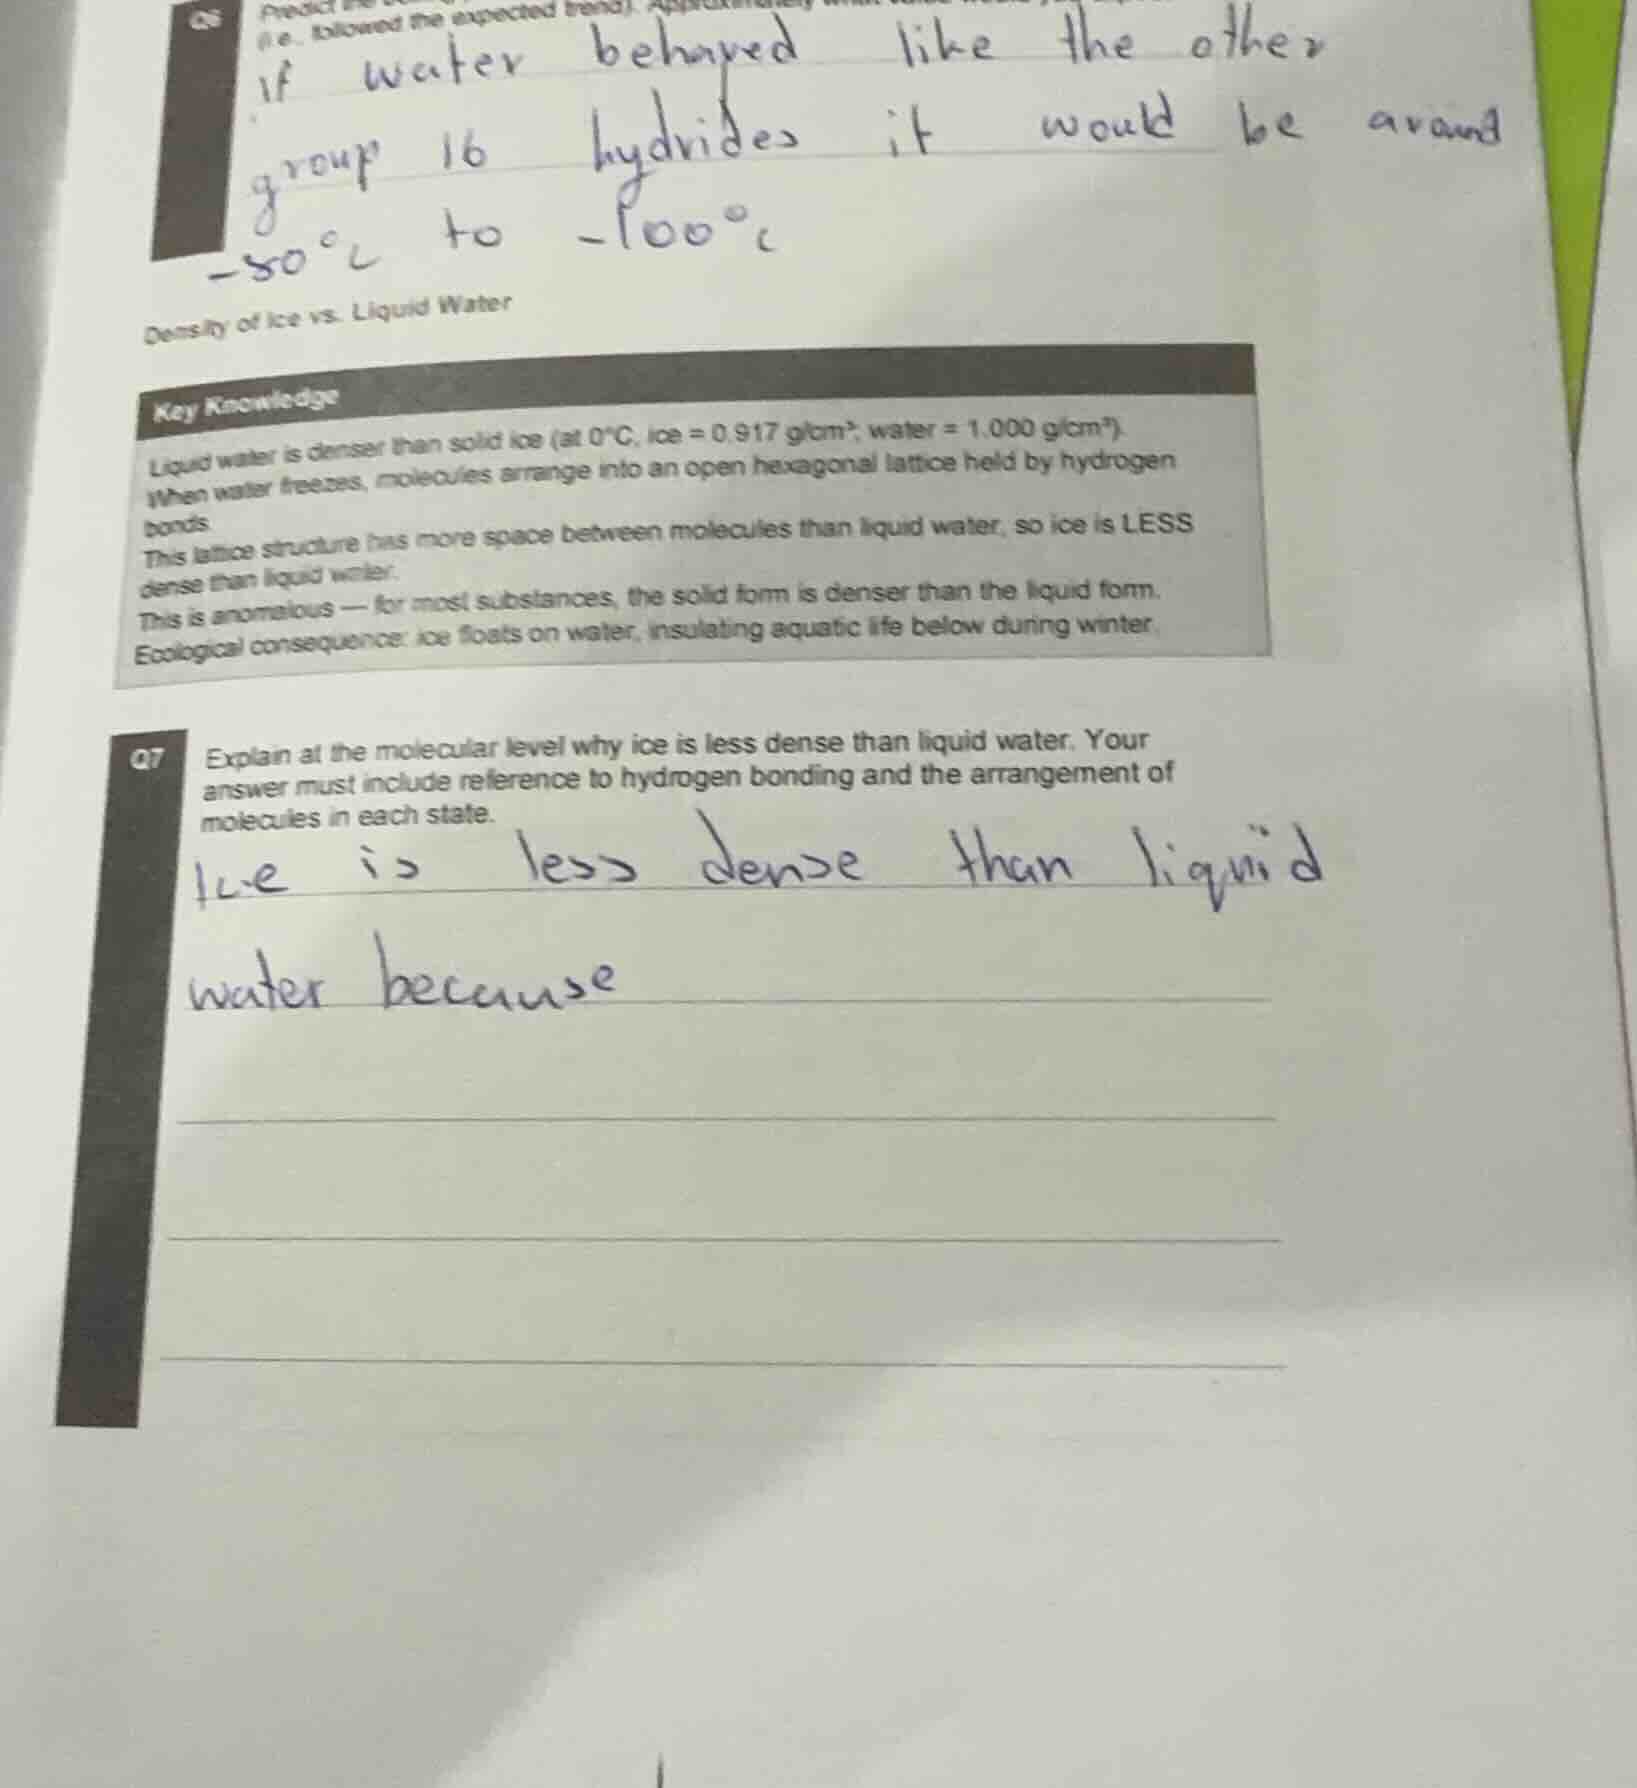 Q6 Predict the
(i.e., followed the expected trend). Approximately what value would you
if water behaved like the other
group 16 hydrides it would be around
-80°C to -100°C
Density of Ice vs. Liquid Water
Key Knowledge
Liquid water is denser than solid ice (at 0°C, ice = 0.917 g/cm³; water = 1.000 g/cm³).
When water freezes, molecules arrange into an open hexagonal lattice held by hydrogen
bonds.
This lattice structure has more space between molecules than liquid water, so ice is LESS
dense than liquid water.
This is anomalous — for most substances, the solid form is denser than the liquid form.
Ecological consequence: ice floats on water, insulating aquatic life below during winter.
Q7 Explain at the molecular level why ice is less dense than liquid water. Your
answer must include reference to hydrogen bonding and the arrangement of
molecules in each state.
Ice is less dense than liquid
water because